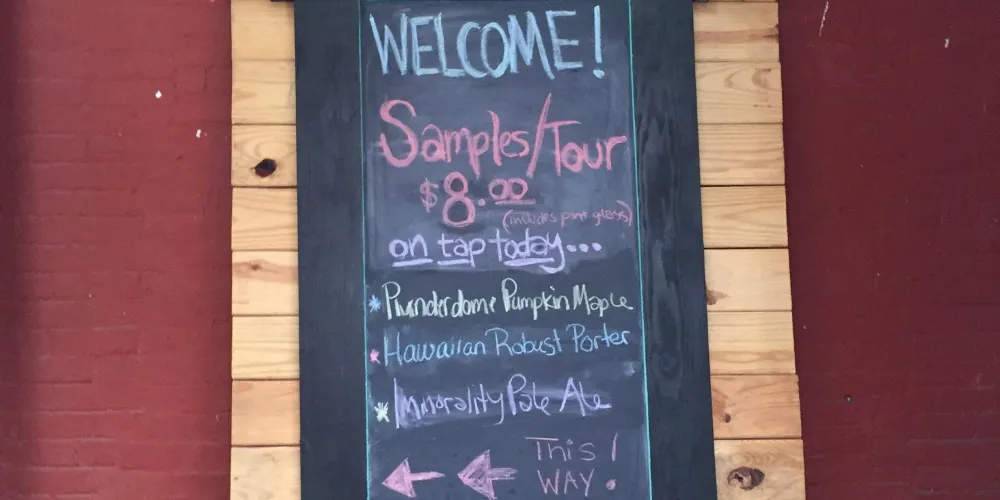 WELCOME!
Samples/Tour
$8.00
(includes pint glass)
on tap today...
* Plunderdome Pumpkin Maple
* Hawaiian Robust Porter
* Immorality Pale Ale
This!
WAY.